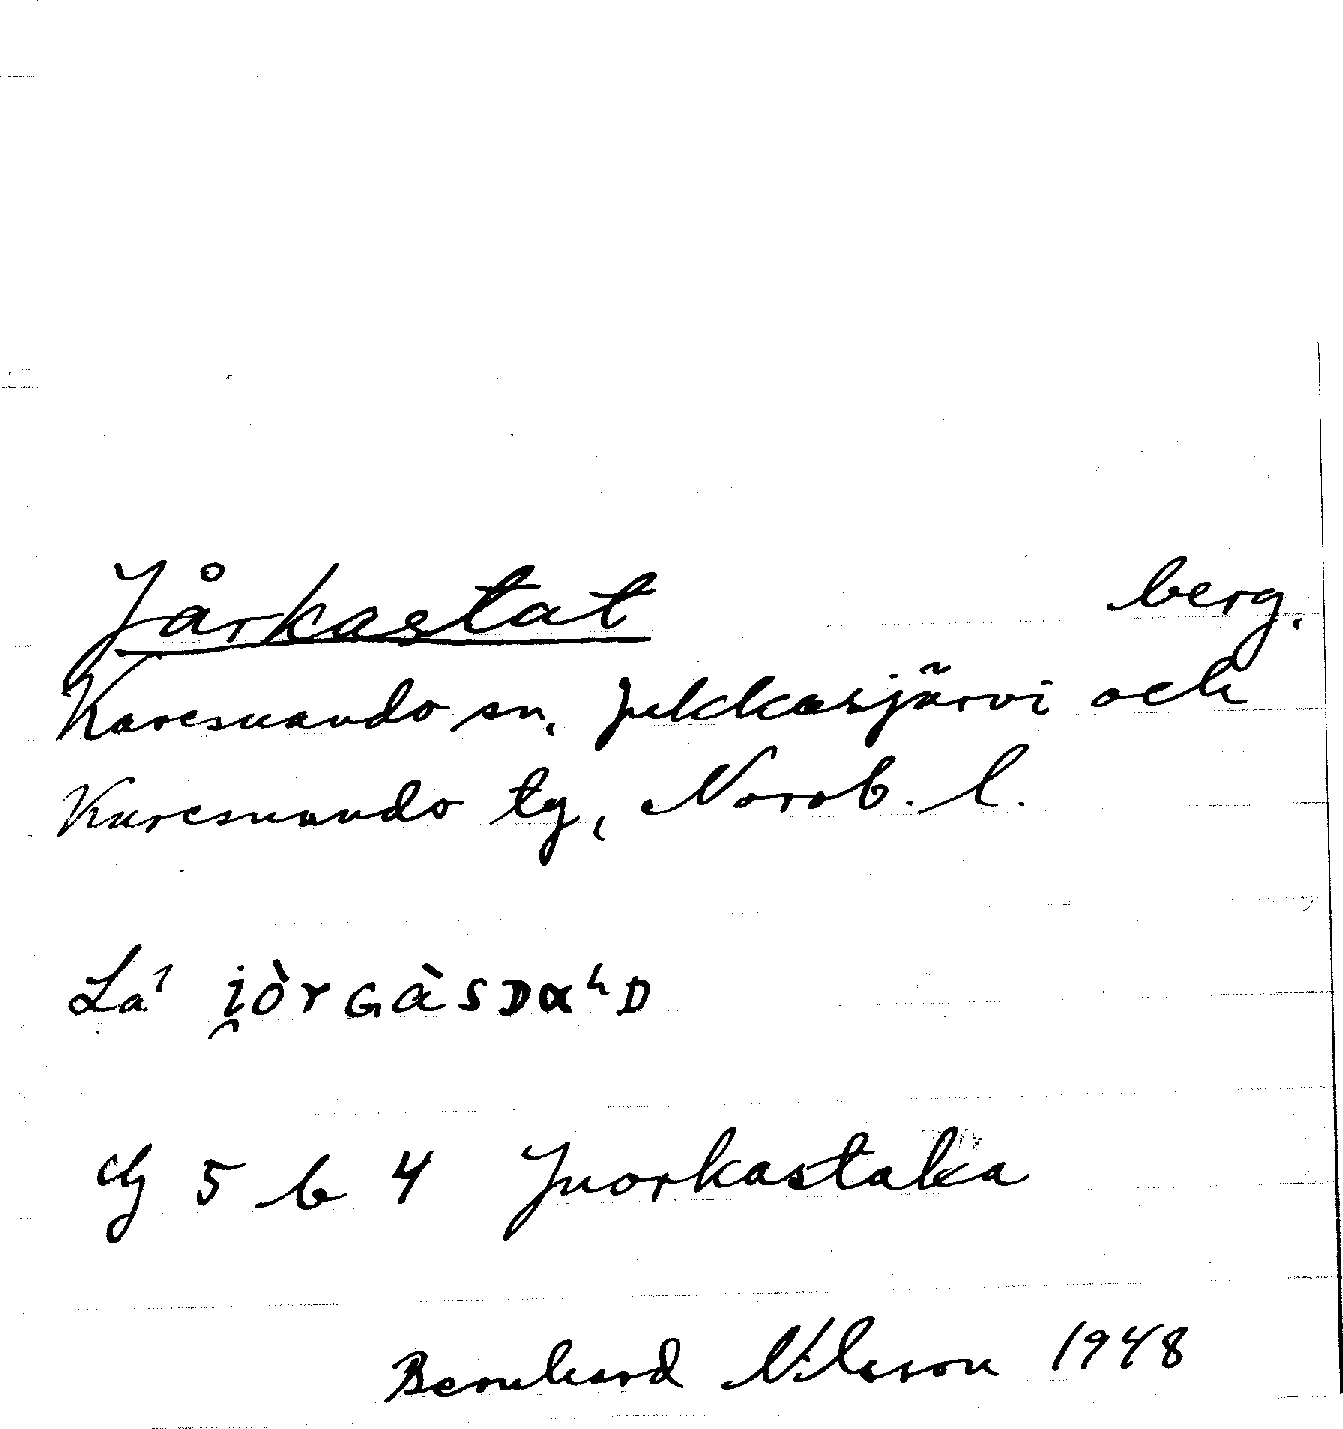 Jårkastat berg.
Karesuando sn, Jukkasjärvi och
Karesuando tg, Norrb. l.
La¹ i̯òrGàsDαʰD
cfj 5 b 4 Juorkastaka
Bernhard Nilsson 1948